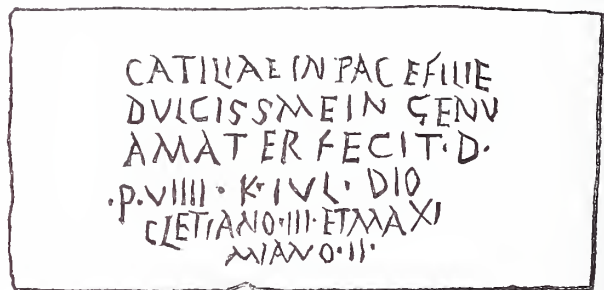 CATILIAE IN PACE FILIE
DULCISSME INGENU
A MATER FECIT·D·
·P·VIIII·K·IVL·DIO
CLETIANO·III·ET MAXI
MIANO·II·